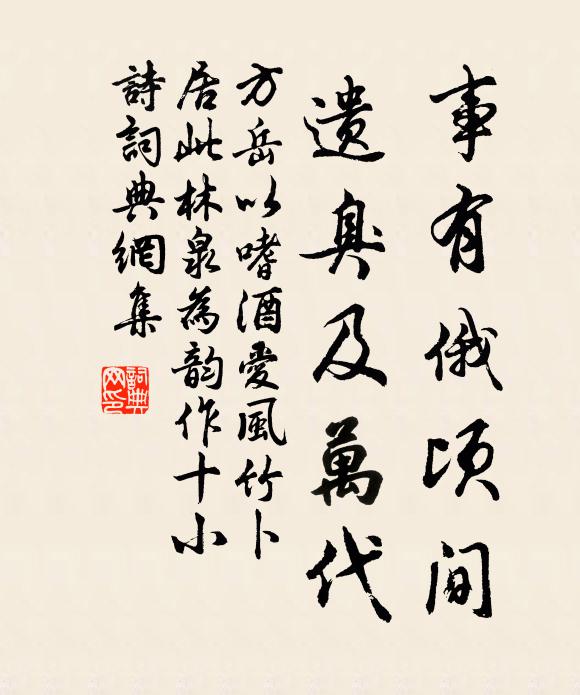 事有俄頃间
遗臭及萬代
方岳以嗜酒愛風竹卜
居此林泉為韵作十小
詩詞典網集
詞典网印